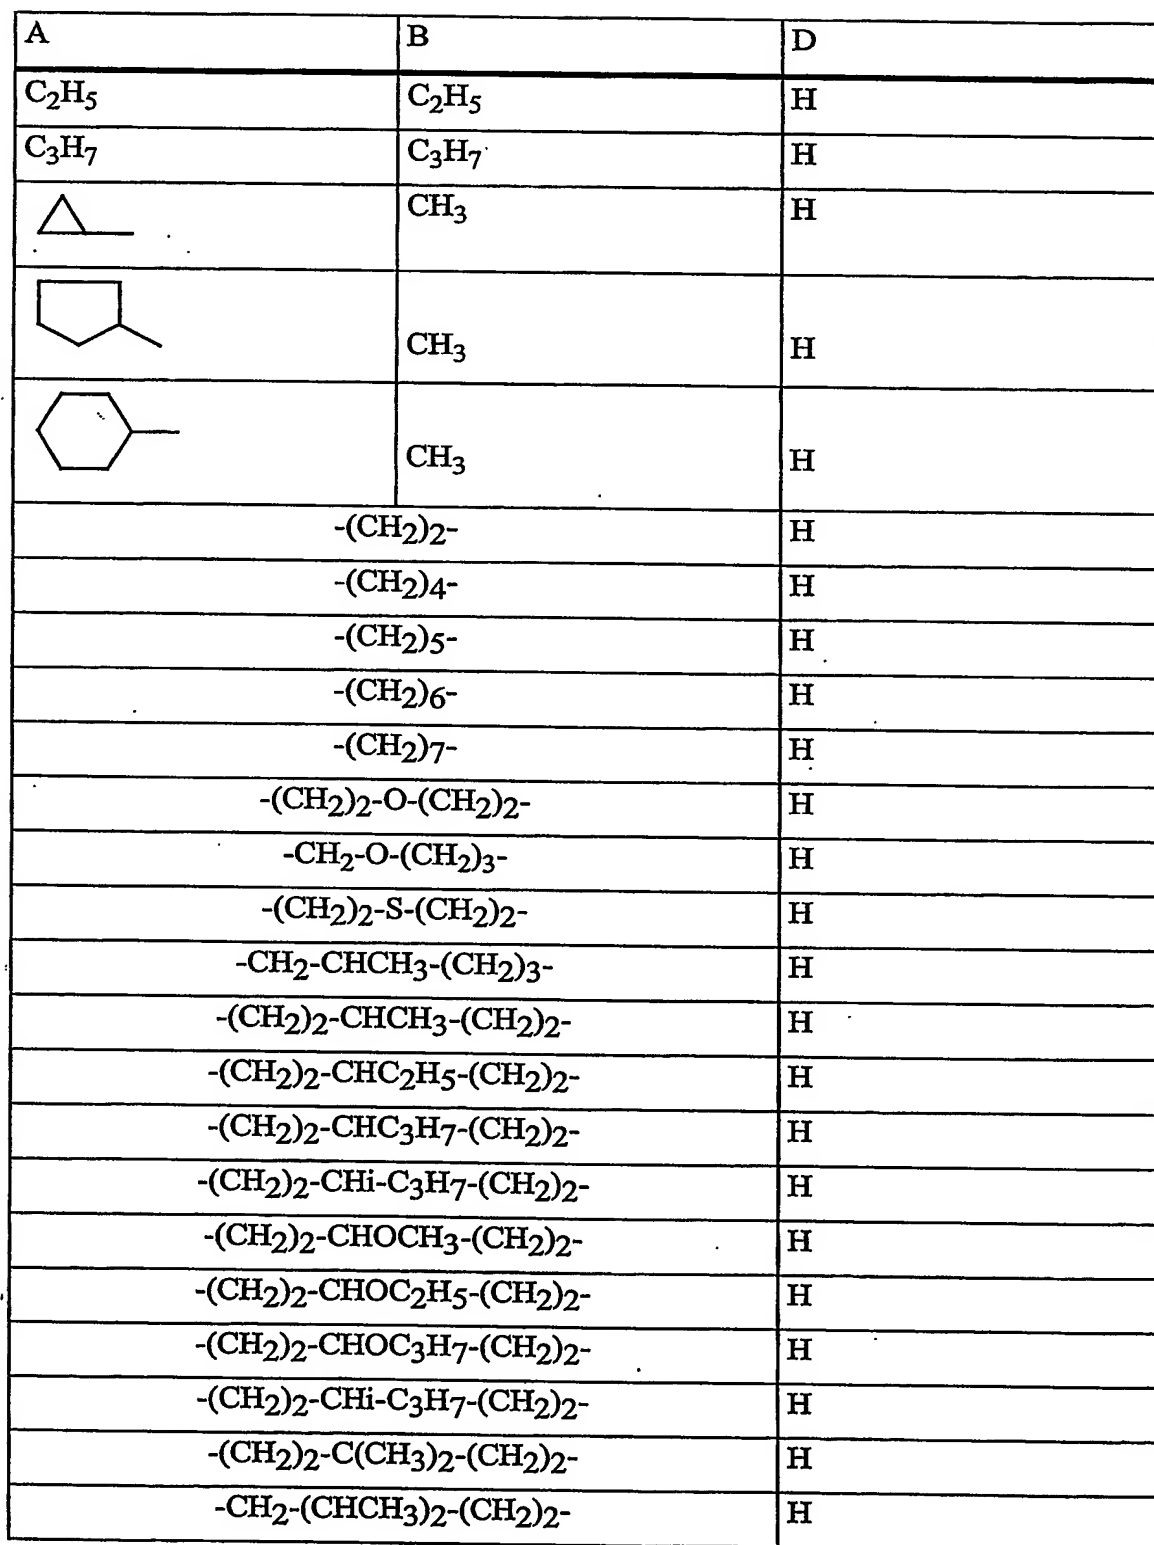 A B D
C2H5 C2H5 H
C3H7 C3H7 H
CH3 H
CH3 H
CH3 H
-(CH2)2- H
-(CH2)4- H
-(CH2)5- H
-(CH2)6- H
-(CH2)7- H
-(CH2)2-O-(CH2)2- H
-CH2-O-(CH2)3- H
-(CH2)2-S-(CH2)2- H
-CH2-CHCH3-(CH2)3- H
-(CH2)2-CHCH3-(CH2)2- H
-(CH2)2-CHC2H5-(CH2)2- H
-(CH2)2-CHC3H7-(CH2)2- H
-(CH2)2-CHi-C3H7-(CH2)2- H
-(CH2)2-CHOCH3-(CH2)2- H
-(CH2)2-CHOC2H5-(CH2)2- H
-(CH2)2-CHOC3H7-(CH2)2- H
-(CH2)2-CHi-C3H7-(CH2)2- H
-(CH2)2-C(CH3)2-(CH2)2- H
-CH2-(CHCH3)2-(CH2)2- H